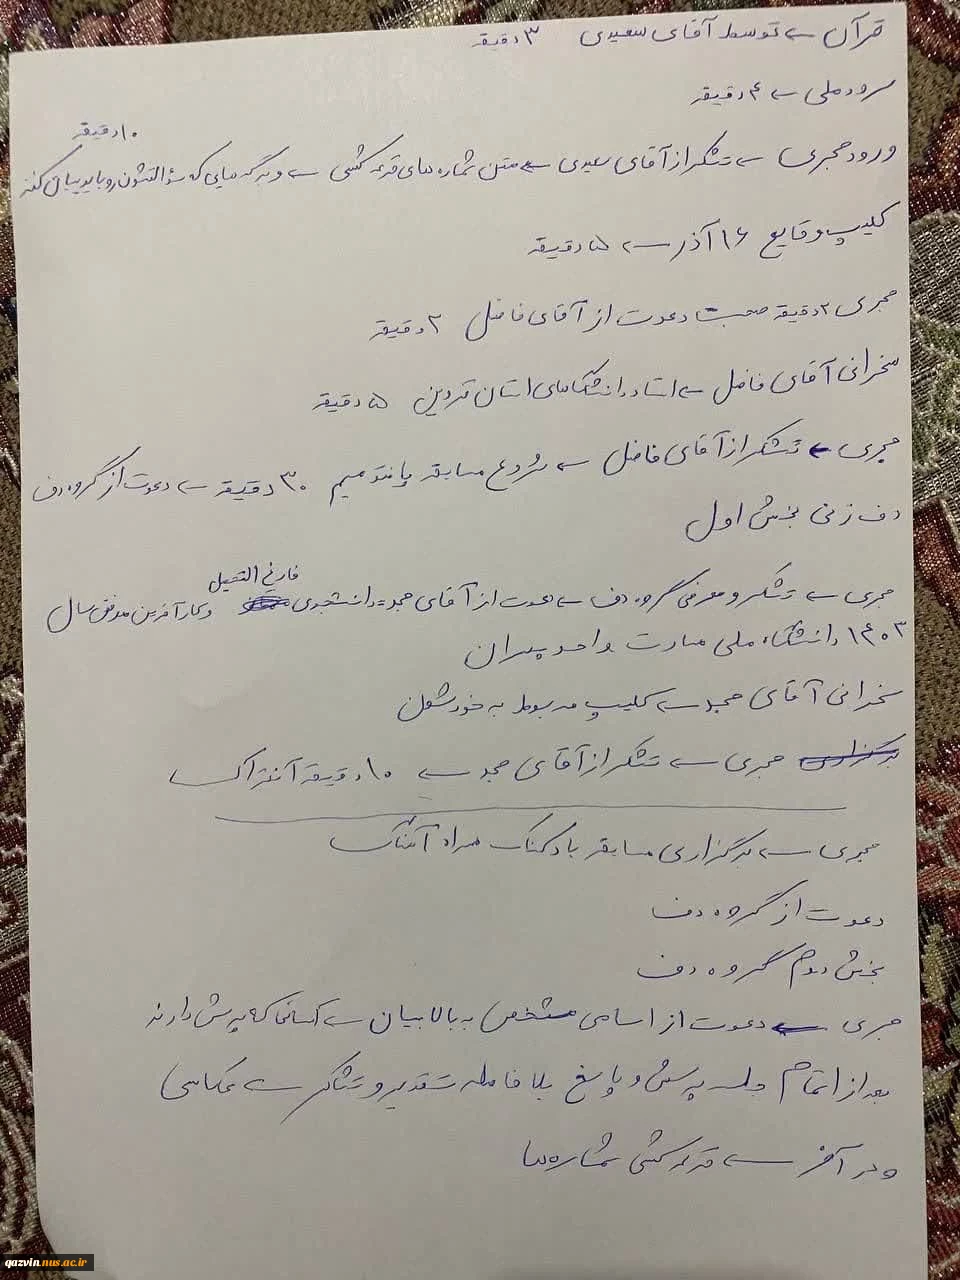 قرآن ← توسط آقای سعیدی ۳ دقیقه
سرود ملی ← ۴ دقیقه
۱۰ دقیقه
ورود مجری ← تشکر از آقای سعیدی ← متن شماره های قرعه کشی ← و برگه هایی که سؤالتشون رو باید بیان کنند
کلیپ وقایع ۱۶ آذر ← ۵ دقیقه
مجری ۲ دقیقه صحبت دعوت از آقای فاضل ۲ دقیقه
سخرانی آقای فاضل ← استاد دانشگاهای استان قزوین ۵ دقیقه
مجری ← تشکر از آقای فاضل ← شروع مسابقه پانتومیم ۳۰ دقیقه ← دعوت از گروه دف
دف زنی بخش اول
فارغ التحیل
مجری ← تشکر و معرفی گروه دف ← دعوت از آقای دانشجوی و کارآفرین موفق سال
۱۴۰۳ دانشگاه ملی مهارت واحد پسران
سخرانی آقای ← کلیپ مربوط به خودشون
مجری ← تشکر از آقای ← ۱۰ دقیقه آنتراک
مجری ← برگزاری مسابقه بادکنک همراه آهنگ
دعوت از گروه دف
بخش دوم گروه دف
مجری ← دعوت از اسامی مشخص به بالا بیان ← کسانیکه پرسش دارند
بعد از اتمام جلسه پرسش و پاسخ بلافاصله تقدیر و تشکر ← عکاسی
و در آخر ← قرعه کشی شماره ها
qazvin.nus.ac.ir